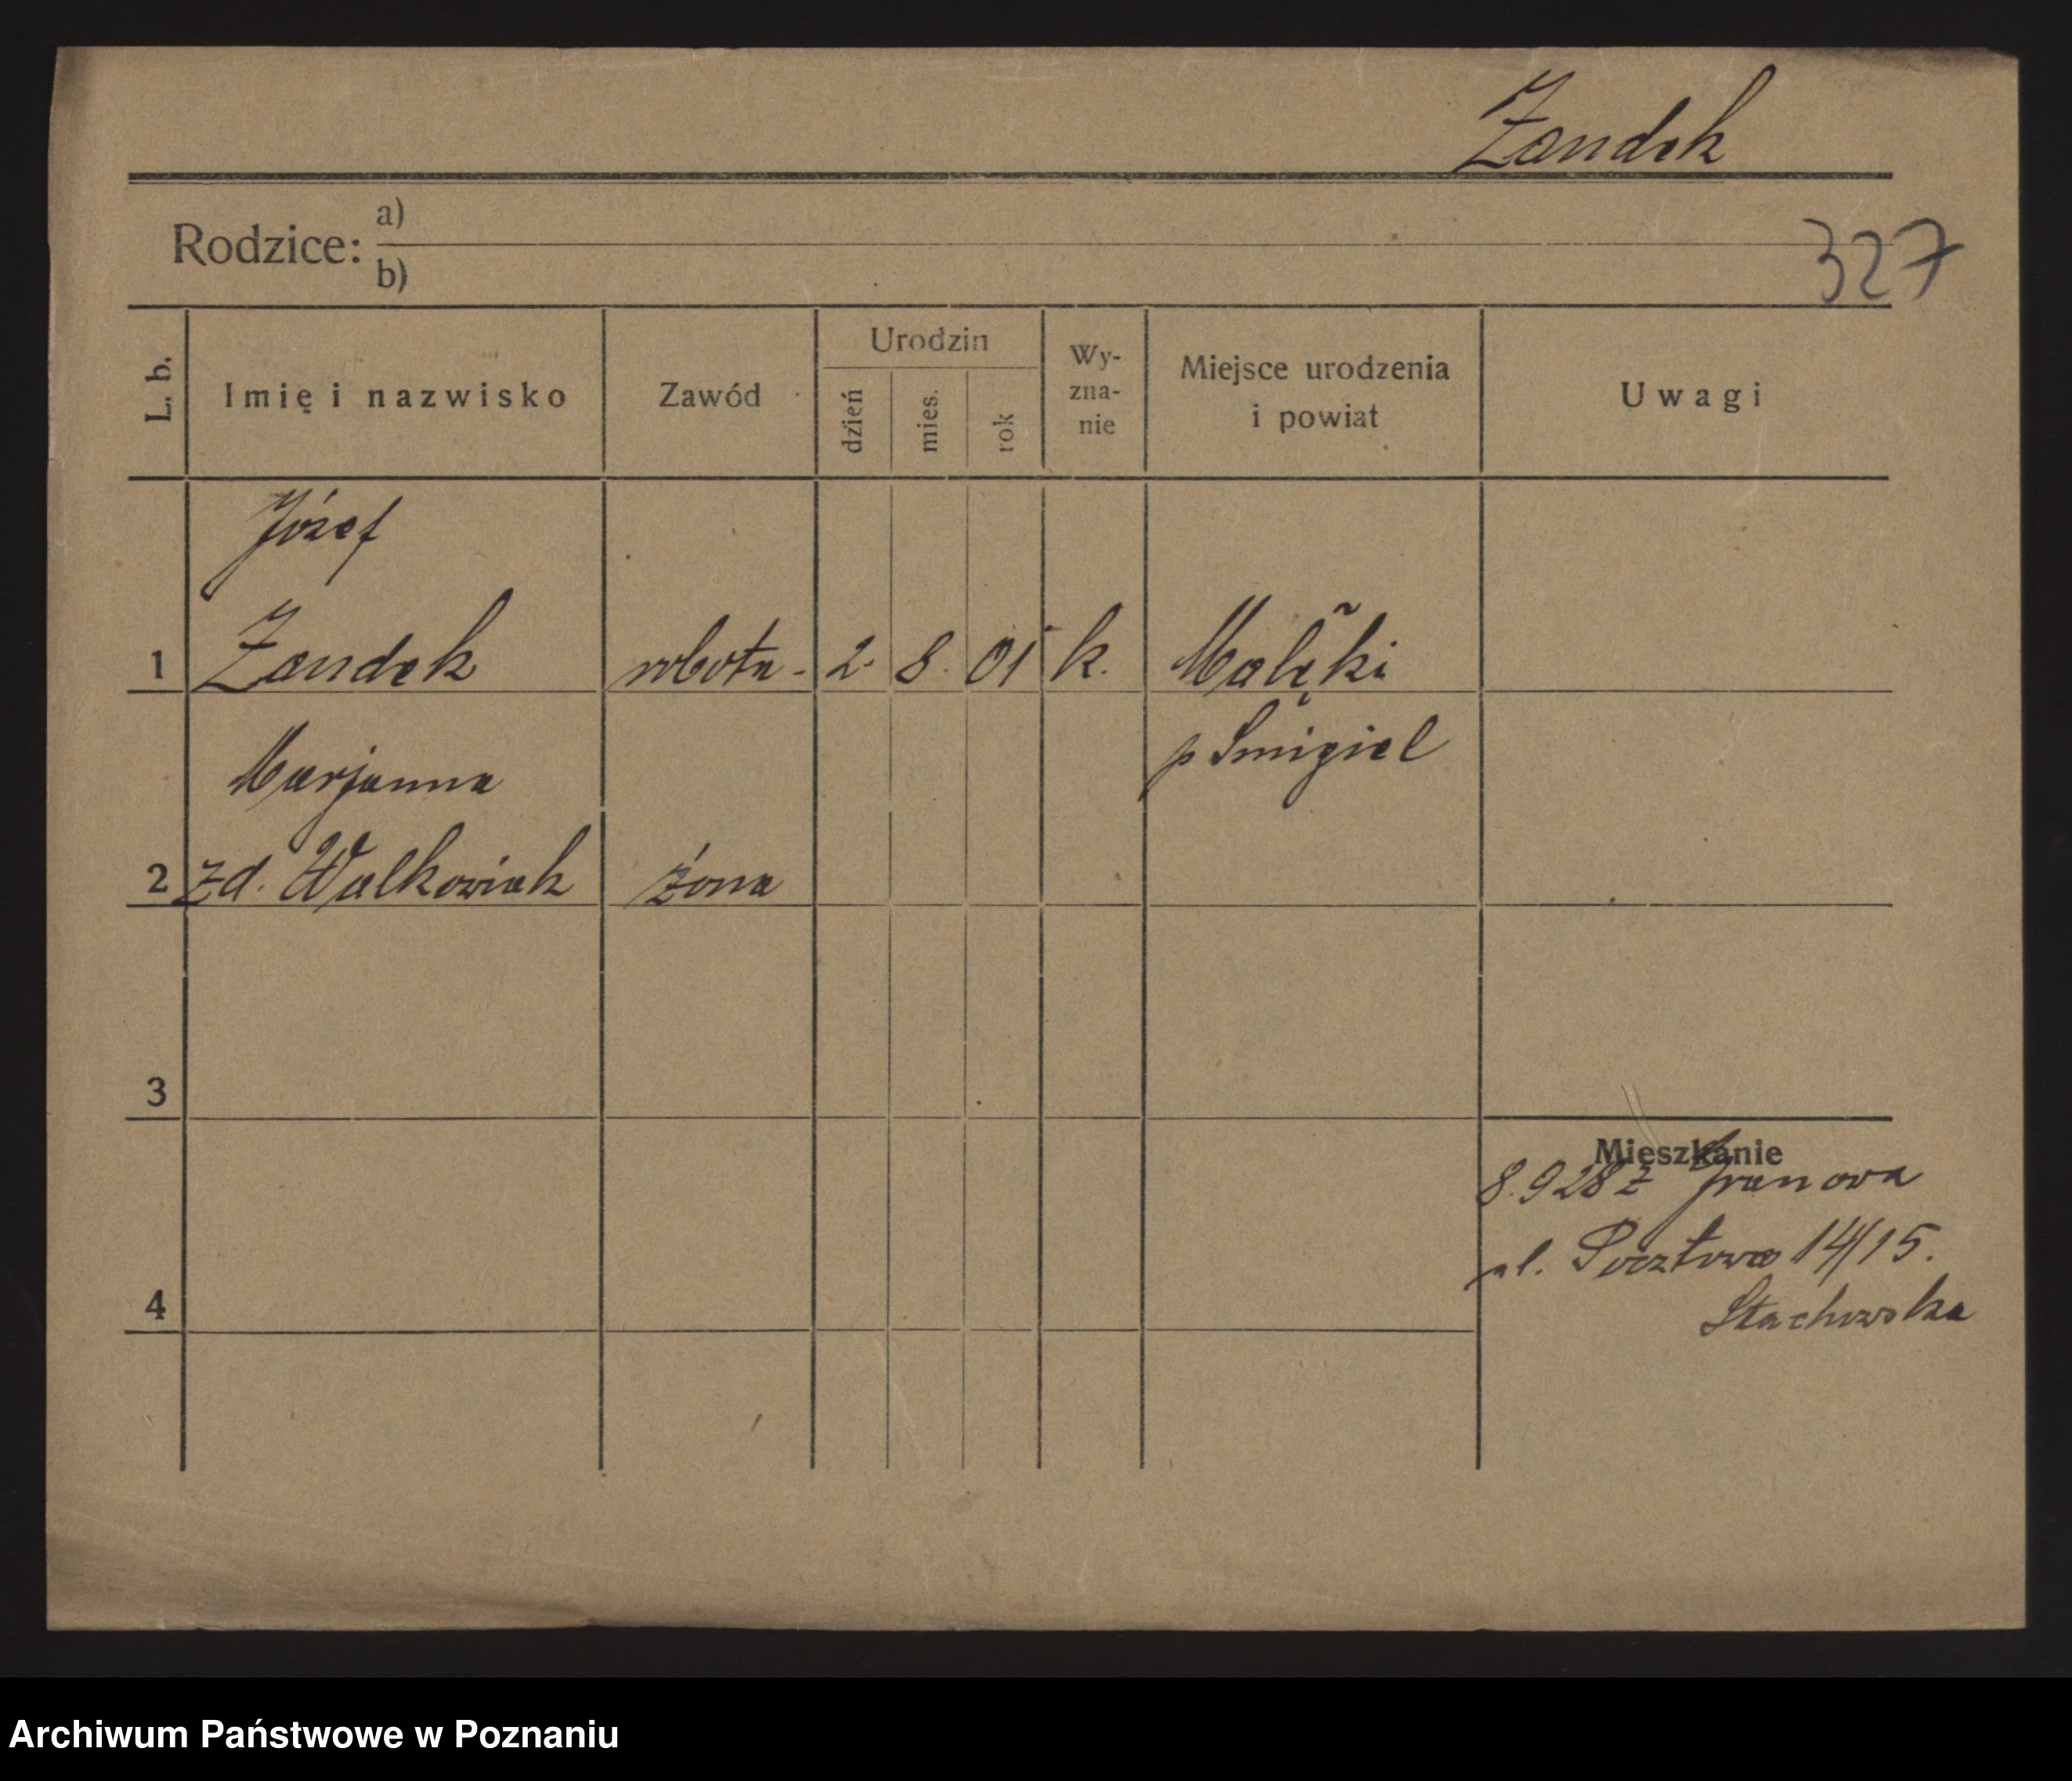 Zandek
Rodzice: a)
b)
327
L. b.
Imię i nazwisko
Zawód
Urodzin
dzień
mies.
rok
Wy-
zna-
nie
Miejsce urodzenia
i powiat
Uwagi
Józef
1 Zandek robotn- 2. 8. 01 k.
p Śmigiel
Marjanna
2 zd. Walkowiak żona
3
Mieszkanie
8.928 z
ul. Pocztowa 14/15.
Stachowska
4
Archiwum Państwowe w Poznaniu